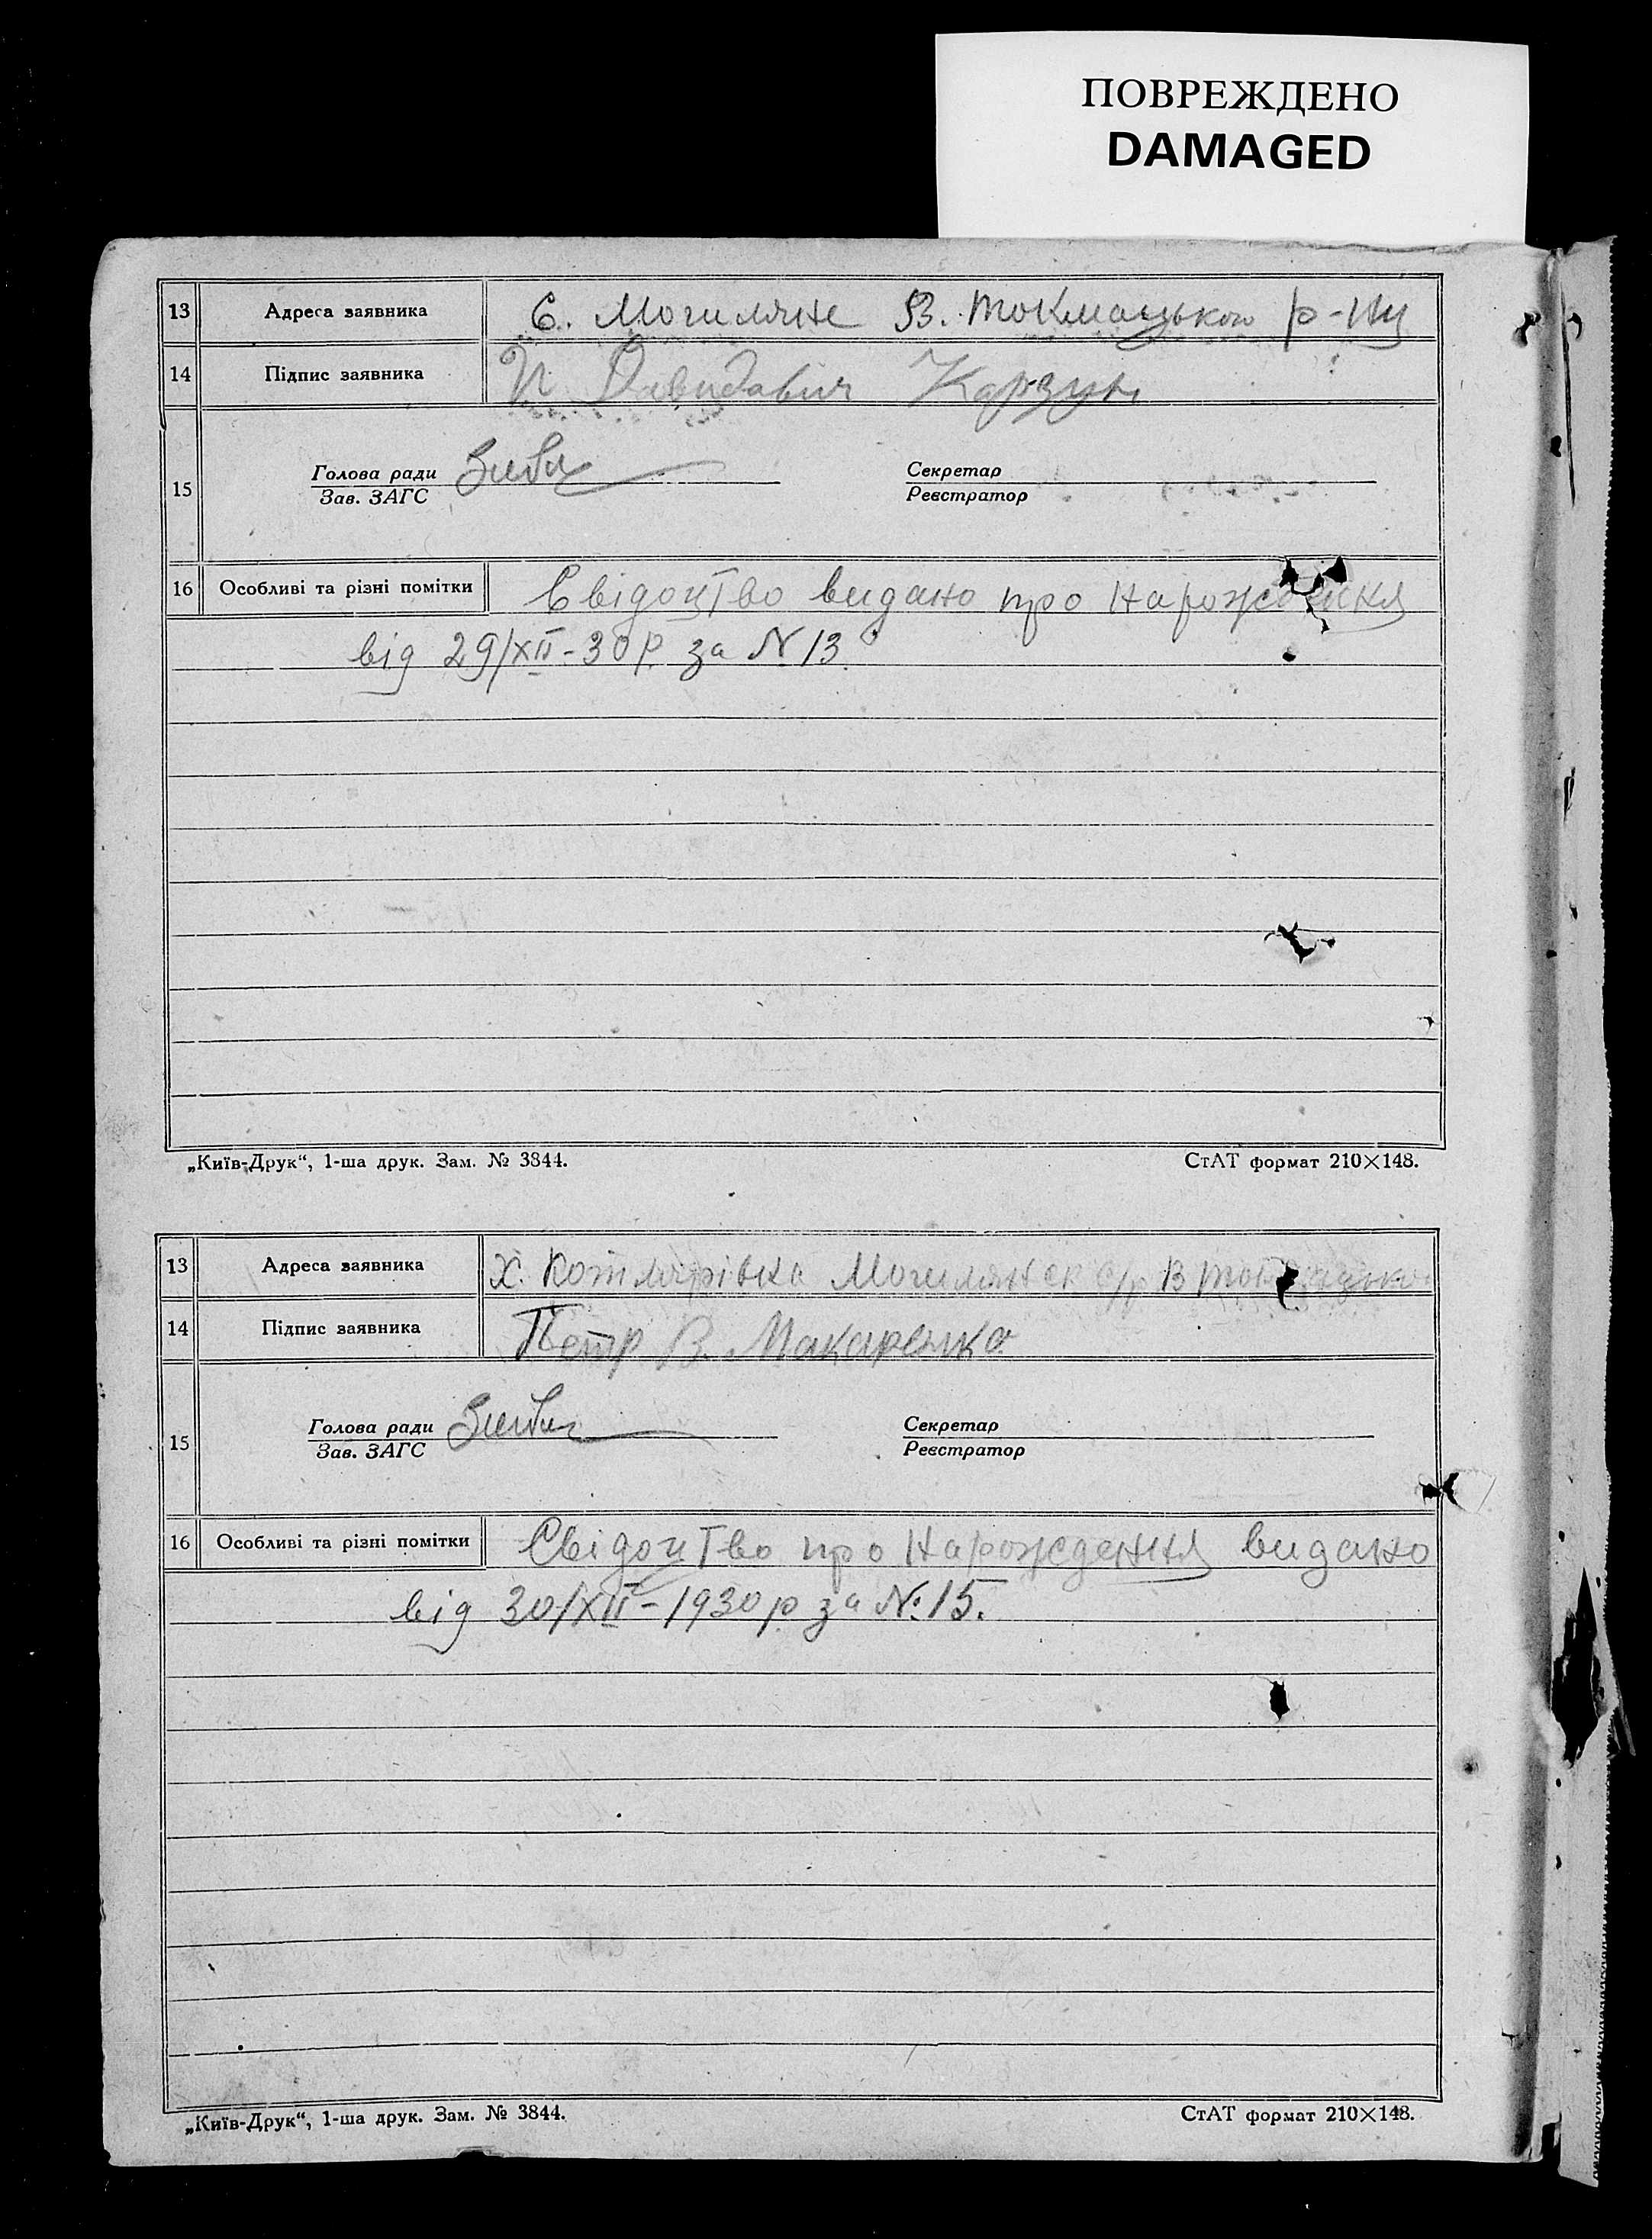 ПОВРЕЖДЕНО
DAMAGED
13 Адреса заявника С. Могиляне В. Токмацького р-ну
14 Підпис заявника Давидавич
15 Голова ради Секретар
Зав. ЗАГС Реєстратор
16 Особливі та різні помітки Свідоцтво видано про нарождення
від 29/XII-30 р. за № 13.
„Київ-Друк“, 1-ша друк. Зам. № 3844. СтАТ формат 210×148.
13 Адреса заявника Х. Котлярівка Могилянск с/р В
14 Підпис заявника Петр В. Макаренко
15 Голова ради Секретар
Зав. ЗАГС Реєстратор
16 Особливі та різні помітки Свідоцтво про нарождення видано
від 30/XII-1930 р. за №15.
„Київ-Друк“, 1-ша друк. Зам. № 3844. СтАТ формат 210×148.